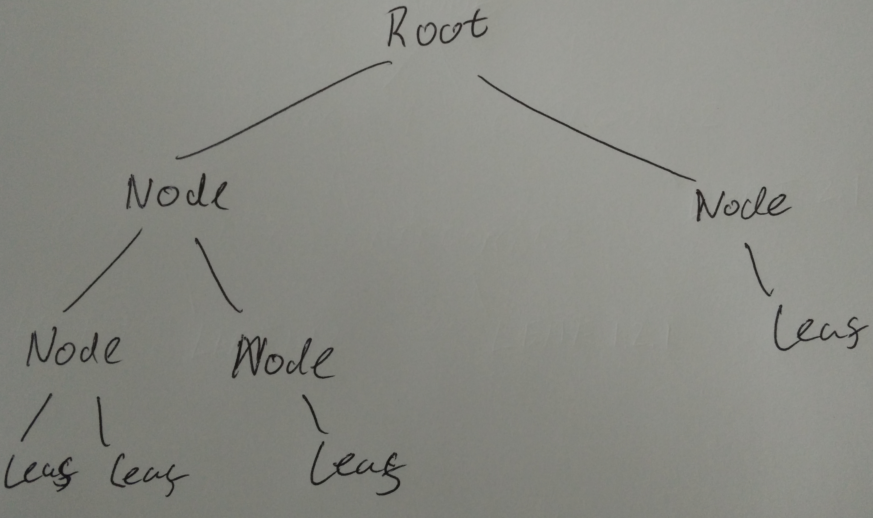 Root
Node Node
Node Node Leaf
Leaf Leaf Leaf